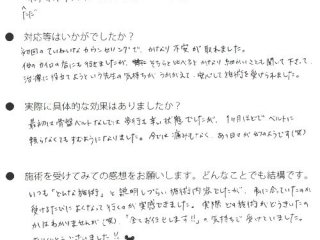 ● 対応等はいかがでしたか？
初回のていねいなカウンセリングで、かなり不安が取れました。
他の所にも行きましたが、そちらと比べるとかなり細かいことも聞いて下さって
治療に役立てようという先生の気持ちがうかがえて、安心して施術を受けられました。
● 実際に具体的な効果はありましたか？
最初は骨盤ベルトなしでは歩行も辛い状態でしたが、1ヶ月ほどでベルトに
頼らなくてもすむようになりました。今では痛みもなく、あの日々がウソのようです(笑)
● 施術を受けてみての感想をお願いします。どんなことでも結構です。
いつも「どんな施術」と説明しづらい施術内容でしたが、私に合っていたのか
受けるたびによくなって行くのが実感できました。実際どう施術がどうきいたの
かはわかりませんが(笑)「全てお任せします!!」の気持ちで受けていました。
ありがとうございました!!